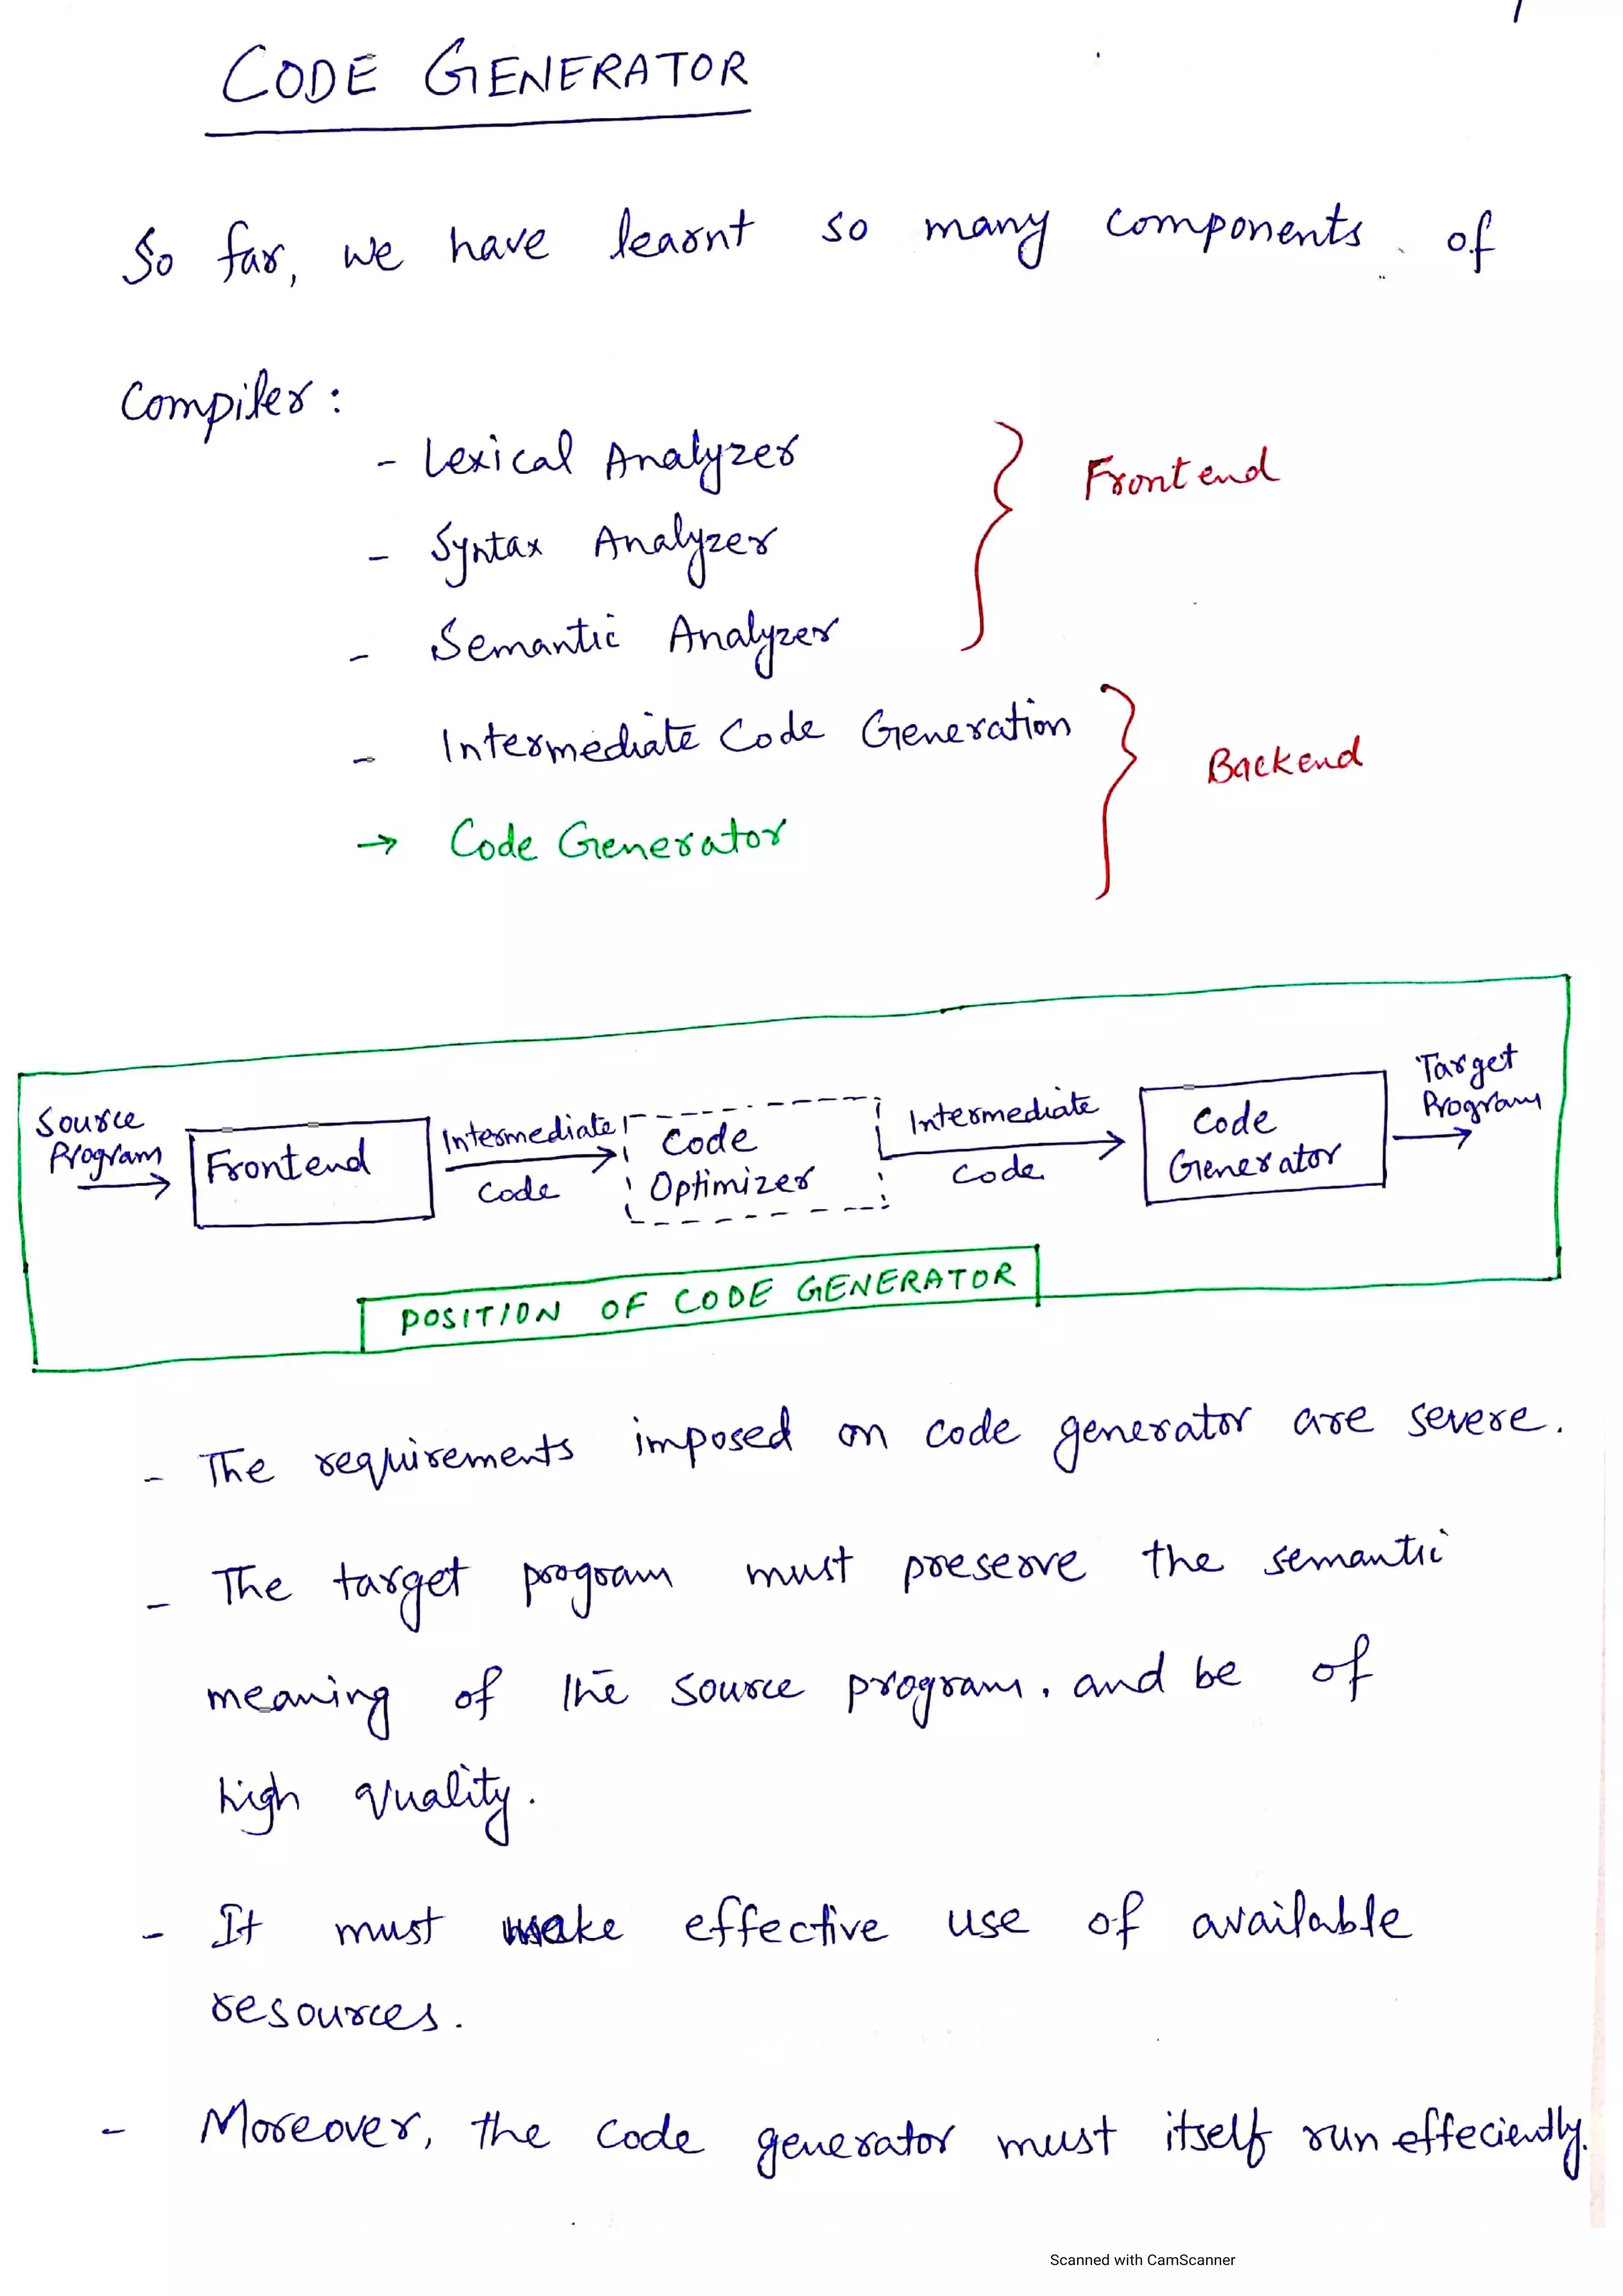 1
CODE GENERATOR
So far, we have learnt so many components of
Compiler:
- Lexical Analyzer
Frontend
- Syntax Analyzer
- Semantic Analyzer
- Intermediate Code Generation
Backend
→ Code Generator
Source Program
Frontend
Intermediate Code
Code Optimizer
Intermediate Code
Code Generator
Target Program
POSITION OF CODE GENERATOR
- The requirements imposed on code generator are severe.
- The target program must preserve the semantic
meaning of the source program. and be of
high quality.
- It must make effective use of available
resources.
- Moreover, the code generator must itself run effeciently.
Scanned with CamScanner